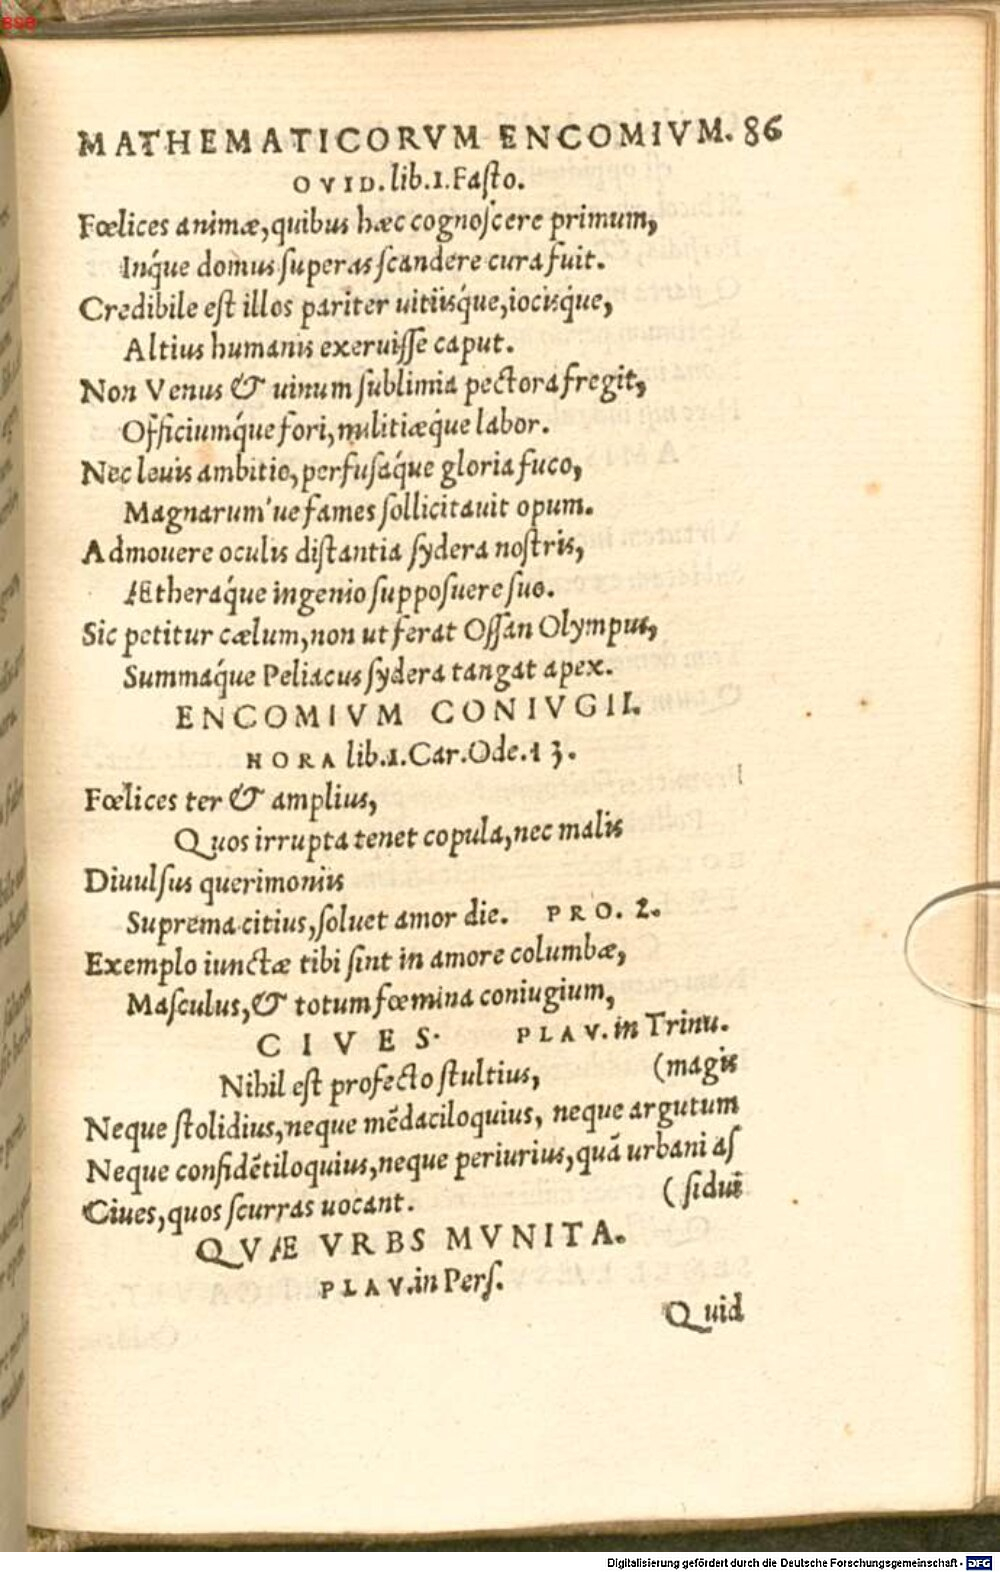 BSB
MATHEMATICORVM ENCOMIVM. 86
OVID. lib. 1. Fasto.
Fœlices animæ, quibus hæc cognoscere primum,
Inq́ue domus superas scandere cura fuit.
Credibile est illos pariter uitiisq́ue, iocisq́ue,
Altius humanis exeruisse caput.
Non Venus & uinum sublimia pectora fregit,
Officiumq́ue fori, militiæq́ue labor.
Nec leuis ambitio, perfusaq́ue gloria fuco,
Magnarum'ue fames sollicitauit opum.
Admouere oculis distantia sydera nostris,
Ætheraq́ue ingenio supposuere suo.
Sic petitur cælum, non ut ferat Ossan Olympus,
Summaq́ue Peliacus sydera tangat apex.
ENCOMIVM CONIVGII.
HORA lib. 1. Car. Ode. 13.
Fœlices ter & amplius,
Quos irrupta tenet copula, nec malis
Diuulsus querimoniis
Suprema citius, soluet amor die. PRO. 2.
Exemplo iunctæ tibi sint in amore columbæ,
Masculus, & totum fœmina coniugium,
CIVES. PLAV. in Trinu.
Nihil est profecto stultius, (magis
Neque stolidius, neque mēdaciloquius, neque argutum
Neque confidētiloquius, neque periurius, quā urbani as
Ciues, quos scurras uocant. ( siduī
QVÆ VRBS MVNITA.
PLAV. in Pers.
Quid
Digitalisierung gefördert durch die Deutsche Forschungsgemeinschaft - DFG